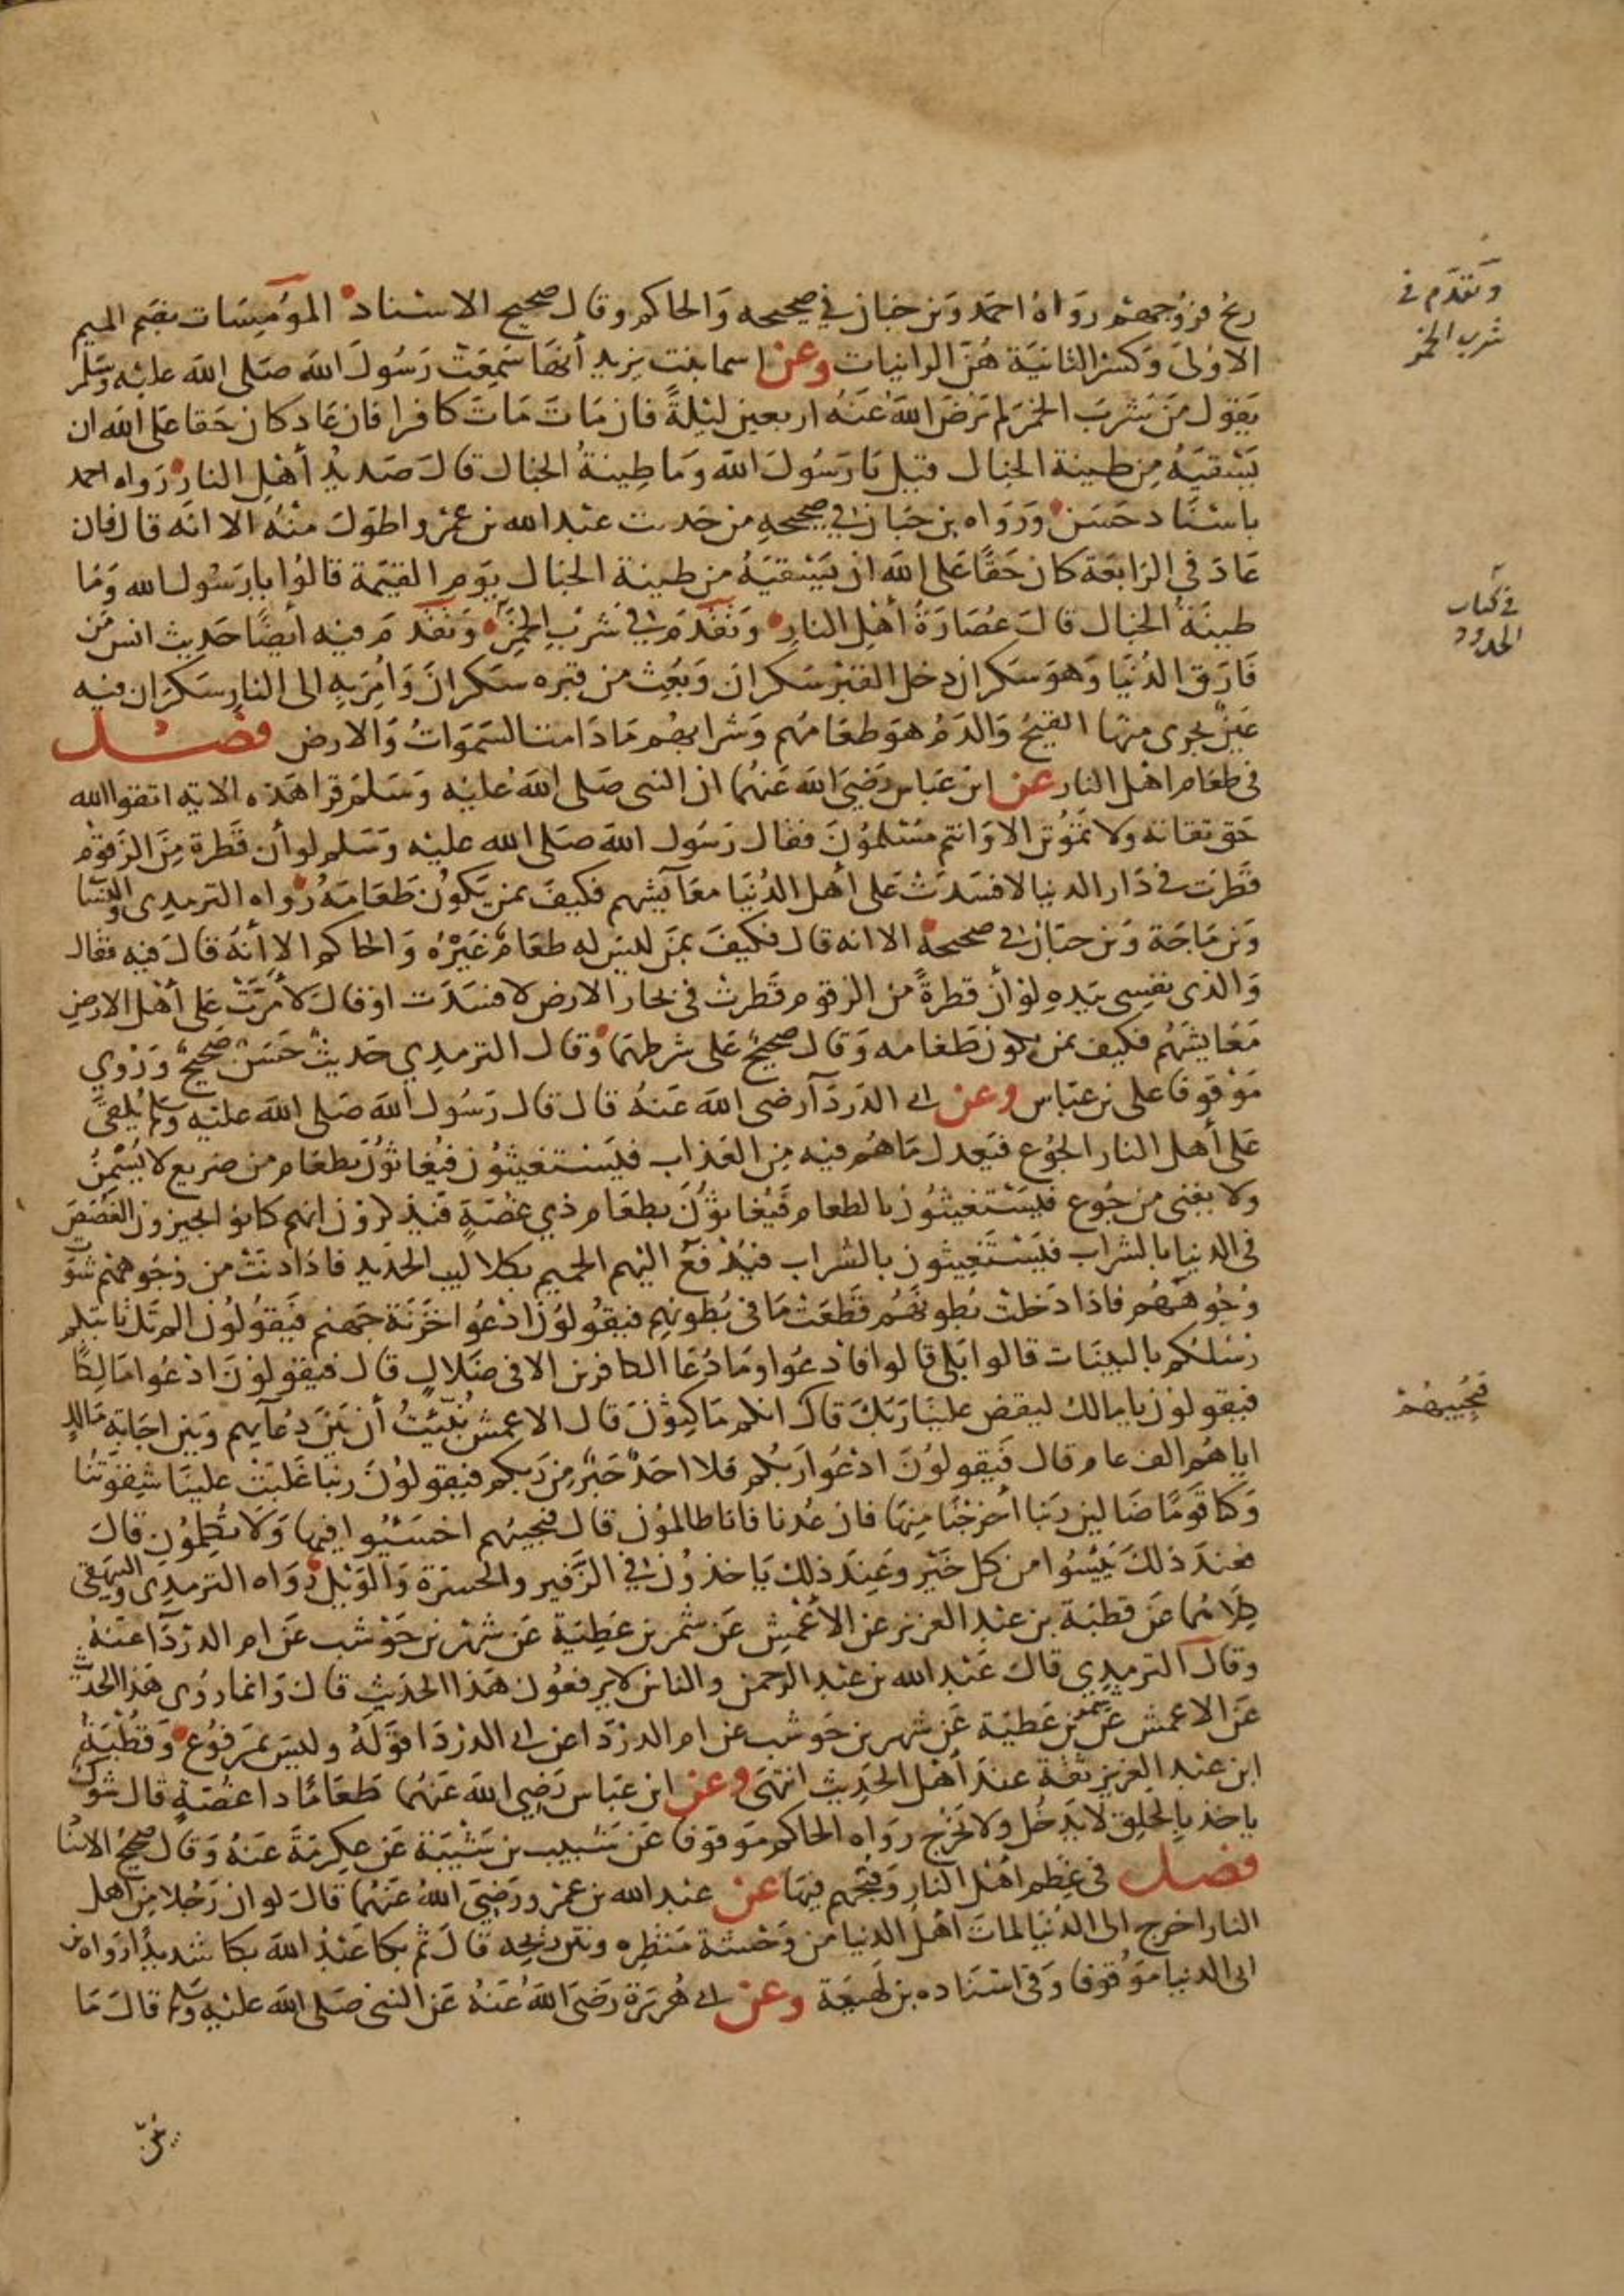 ريح فروجهم رواه احمد وبن حبان في صحيحه والحاكم وقال صحيح الاسناد المومسات بضم الميم
الاولى وكسر الثانية هن الزانيات وعن اسما بنت يزيد أنها سمعت رسول الله صلى الله عليه وسلم
يقول من شرب الخمر لم يرض الله عنه اربعين ليلة فان مات مات كافرا فان عاد كان حقا على الله ان
يسقيه من طينة الخبال قيل يا رسول الله وما طينة الخبال قال صديد أهل النار رواه احمد
باسناد حسن ورواه بن حبان في صحيحه من حديث عبد الله بن عمرو اطول منه الا انه قال فان
عاد في الرابعة كان حقا على الله ان يسقيه من طينة الخبال يوم القيمة قالوا يا رسول الله وما
طينة الخبال قال عصارة أهل النار وتقدم في شرب الخمر وتقدم فيه أيضا حديث انس من
فارق الدنيا وهو سكران دخل القبر سكران وبعث من قبره سكران وامر به الى النار سكران فيه
عين يجرى منها القيح والدم هو طعامهم وشرابهم ما دامت السموات والارض فصل
في طعام اهل النار عن ابن عباس رضي الله عنهما ان النبى صلى الله عليه وسلم قرا هذه الاية اتقوا الله
حق تقاته ولا تموتن الا وانتم مسلمون فقال رسول الله صلى الله عليه وسلم لو أن قطرة من الزقوم
قطرت في دار الدنيا لافسدت على أهل الدنيا معآيشهم فكيف بمن يكون طعامه رواه الترمدى والنسا
وبن ماجة وبن حبان في صحيحه الا انه قال فكيف بمن ليس له طعام غيره والحاكم الا أنه قال فيه فقال
والذى نفسى بيده لو أن قطرة من الزقوم قطرت في بحار الارض لافسدت او قال لأمرت على أهل الارض
معايشهم فكيف بمن يكون طعامه وقال صحيح على شرطهما وقال الترمدي حديث حسن صحيح وروي
موقوفا على بن عباس وعن ابى الدردآ رضى الله عنه قال قال رسول الله صلى الله عليه وسلم يلقى
على أهل النار الجوع فيعدل ما هم فيه من العذاب فيستغيثون فيغاثون بطعام من ضريع لا يسمن
ولا يغنى من جوع فيستغيثون بالطعام فيغاثون بطعام ذي غصة فيذكرون انهم كانوا يجيزون الغصص
في الدنيا بالشراب فيستغيثون بالشراب فيدفع اليهم الحميم بكلاليب الحديد فاذا دنت من وجوههم شوت
وجوههم فاذا دخلت بطونهم قطعت ما في بطونهم فيقولون ادعوا خزنة جهنم فيقولون الم تك تاتيكم
رسلكم بالبينات قالوا بلى قالوا فادعوا وما دعا الكافرين الا في ضلال قال فيقولون ادعوا مالكا
فيقولون يا مالك ليقض علينا ربك قال انكم ماكثون قال الاعمش نبئت أن بين دعآيهم وبين اجابة مالك
اياهم الف عام قال فيقولون ادعوا ربكم فلا احد خير من ربكم فيقولون ربنا غلبت علينا شقوتنا
وكنا قوما ضالين ربنا أخرجنا منها فان عدنا فانا ظالمون قال فيجيبهم اخسئوا فيها ولا تكلمون قال
فعند ذلك يئسوا من كل خير وعند ذلك ياخذون في الزفير والحسرة والويل رواه الترمدى والبيهقى
كلاهما عن قطبة بن عبد العزيز عن الأعمش عن شمر بن عطية عن شهر بن حوشب عن ام الدردآ عنه
وقال الترمدي قال عبد الله بن عبد الرحمن والناس لا يرفعون هذا الحديث قال وانما روى هذا الحديث
عن الاعمش عن شمر بن عطية عن شهر بن حوشب عن ام الدردا عن ابى الدردا قوله وليس بمرفوع وقطبة
ابن عبد العزيز ثقة عند أهل الحديث انتهى وعن ابن عباس رضي الله عنهما طعاما دا غصة قال شوك
ياخذ بالحلق لا يدخل ولا يخرج رواه الحاكم موقوفا عن شبيب بن شيبة عن عكرمة عنه وقال صحيح الاسنا
فصل في عظم أهل النار وقبحهم فيها عن عبد الله بن عمرو رضي الله عنهما قال لو ان رجلا من أهل
النار اخرج الى الدنيا لمات أهل الدنيا من وحشة منظره ونتن ريحه قال ثم بكا عبد الله بكا شديدا رواه بن
ابى الدنيا موقوفا وفي اسناده بن لهيعة وعن ابى هريرة رضى الله عنه عن النبى صلى الله عليه وسلم قال ما
وتقدم في
شرب الخمر
في كتاب
الحدود
فيجيبهم